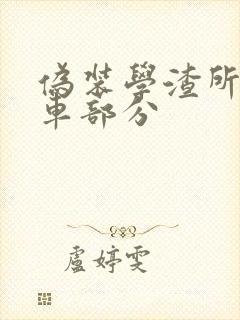 偽裝學渣所
車部分
盧婷雯